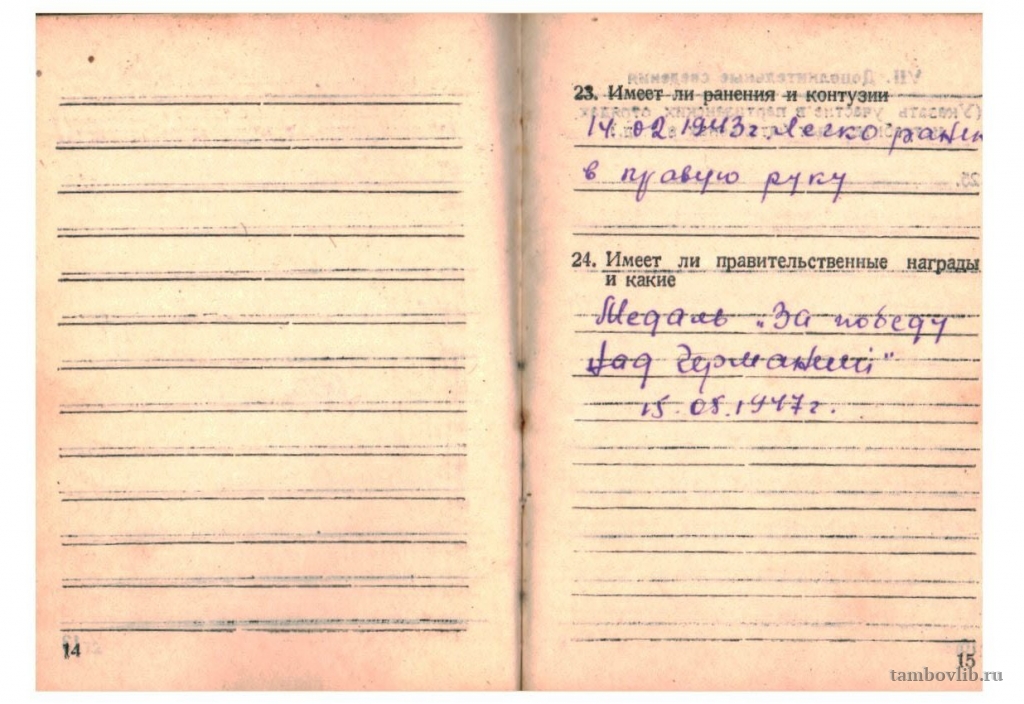 14
23. Имеет ли ранения и контузии
14.02.1943г. Легко ранен
в правую руку
24. Имеет ли правительственные награды
и какие
Медаль „За победу
над Германией"
15.05.1947г.
15
tambovlib.ru